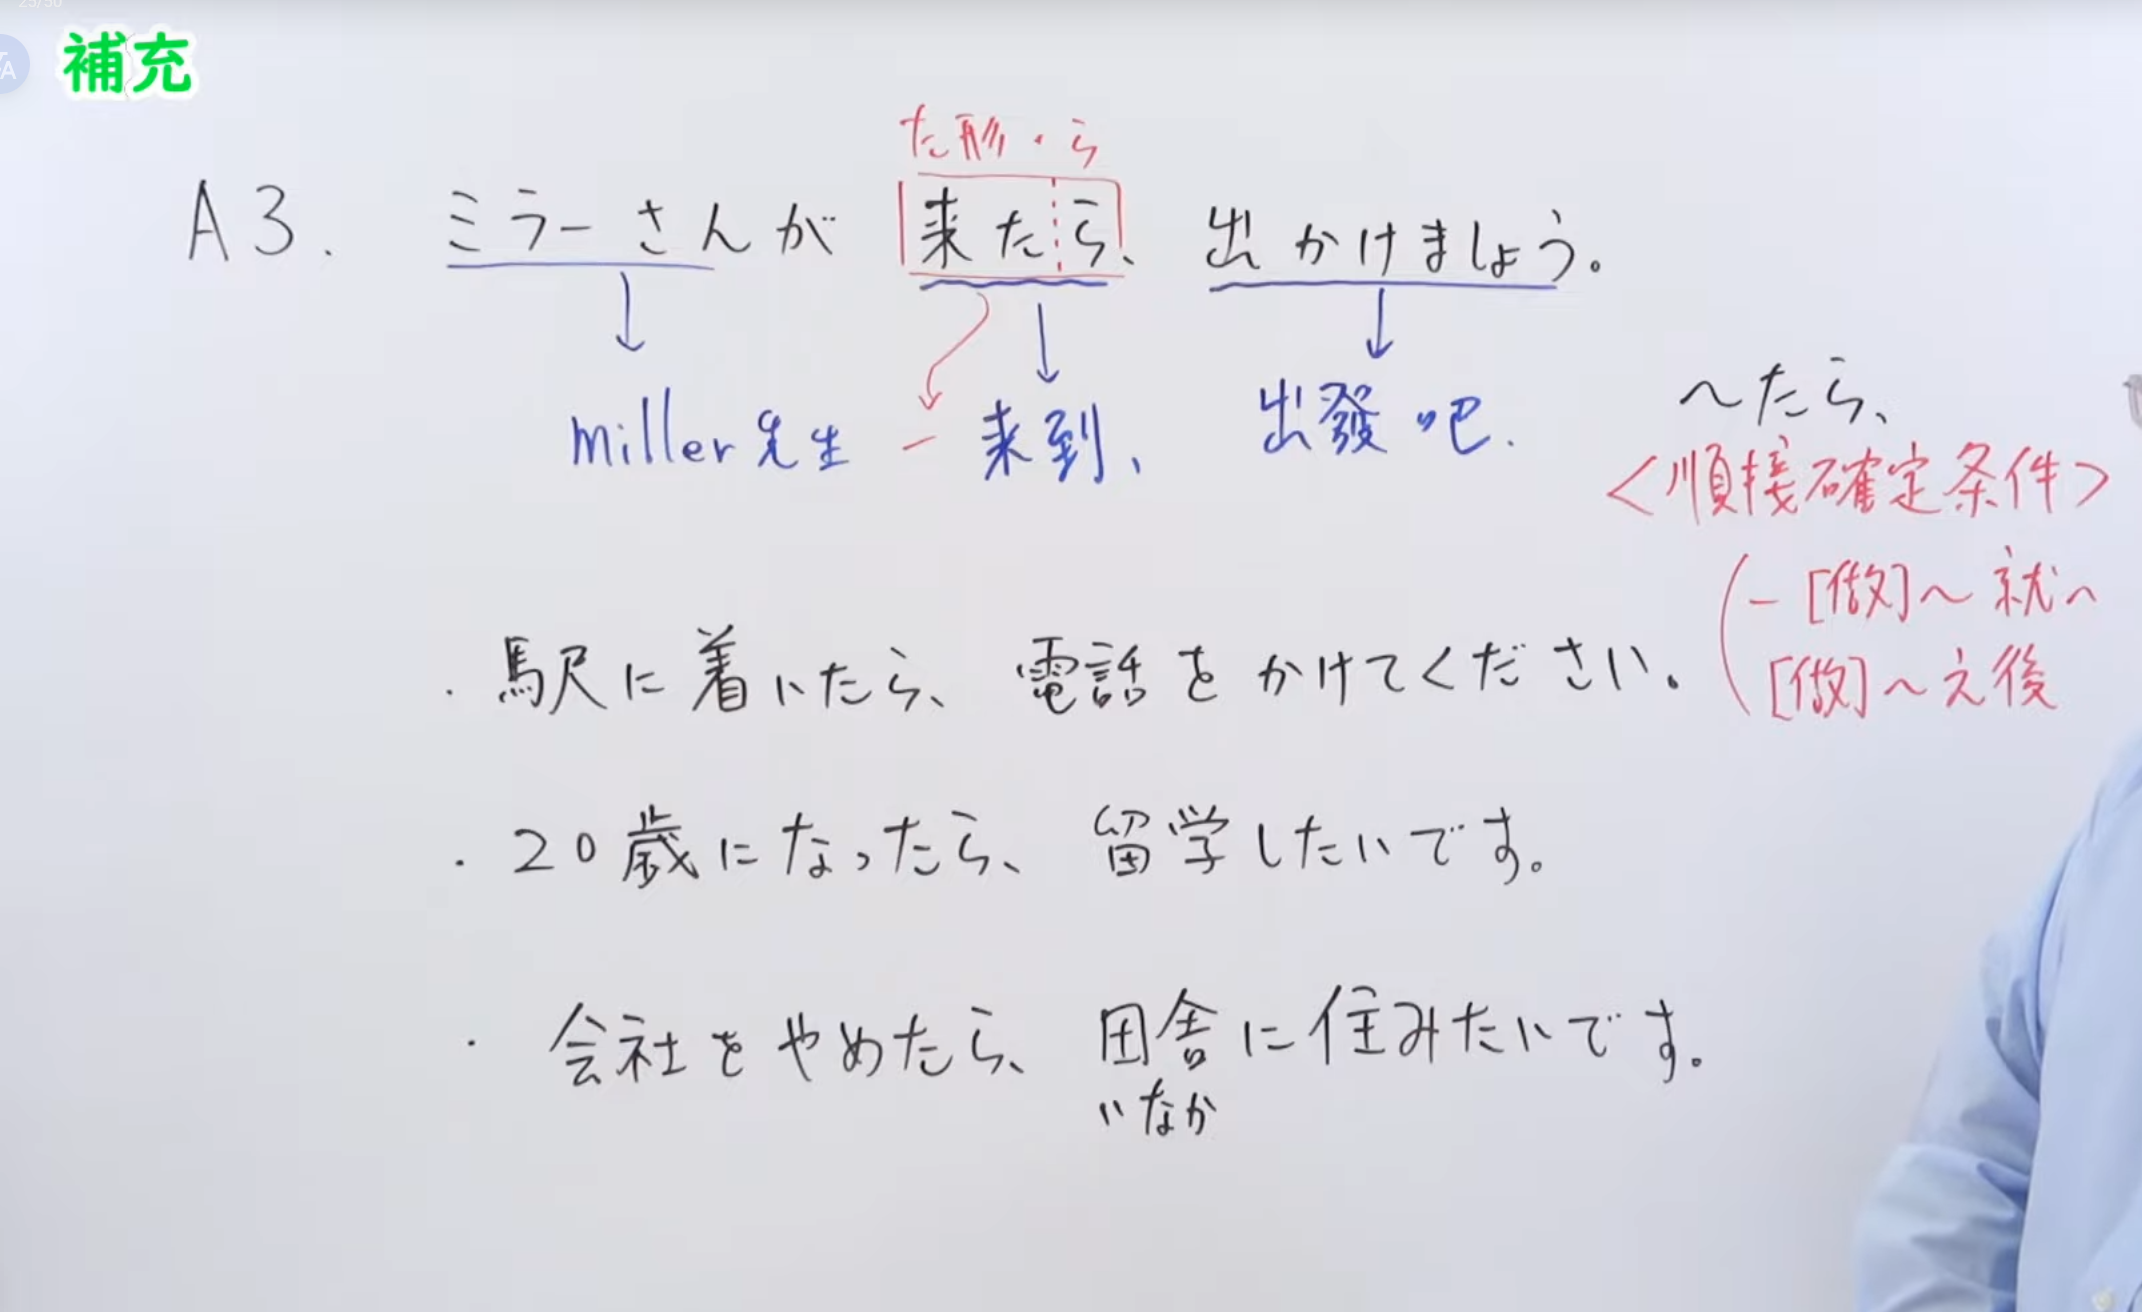 補充
た形・ら
A3. ミラーさんが 来たら、出かけましょう。
miller先生 一 来到、出發吧.
〜たら、
<順接確定条件>
一[做]〜就〜
・駅に着いたら、電話をかけてください。
[做]〜之後
・20歳になったら、留学したいです。
・会社をやめたら、田舎に住みたいです。
いなか